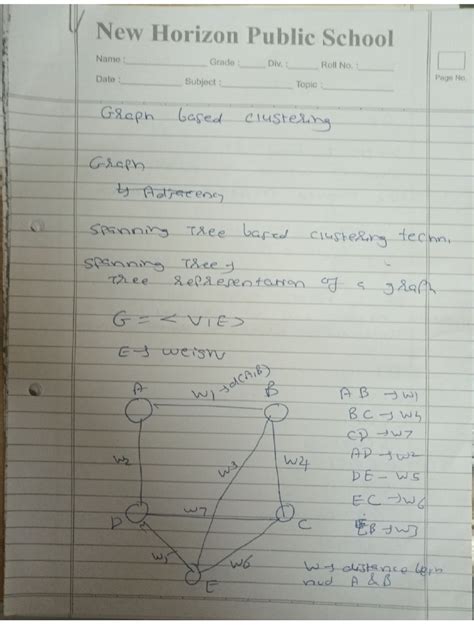 New Horizon Public School
Name : Grade : Div. : Roll No. :
Date : Subject : Topic :
Page No.
Graph based clustering
Graph
↳ Adjacency
spanning Tree based clustering techni.
spanning Tree →
Tree representation of a graph
G = < V, E >
E →
W1 → d(A,B)
A
B
W2
W3
W4
W7
D
C
W5
W6
E
AB → W1
BC → W4
CD → W7
AD → W2
DE - W5
EC → W6
EB → W3
W → distance
A & B